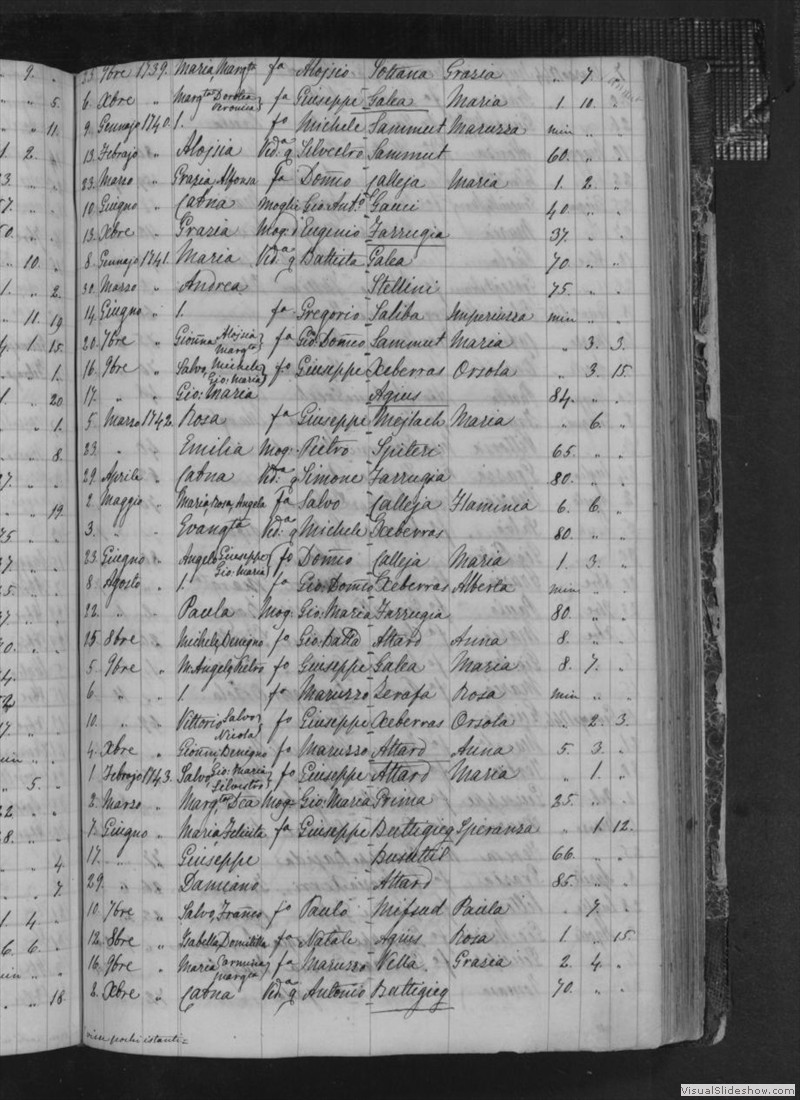 9. 23. 9bre 1739. Maria, Margta fa Alojsio Sottana Grazia " 7. "
" " 5. 6. Xbre " Margta Dorotea Veronica fa Giuseppe Galea Maria 1. 10. "
" " 11. 9. Gennajo 1740. 1. fo Michele Sammut Maruzza min " "
1. 2. " 13. Febrajo " Alojsia Veda q Silvestro Sammut 60. " "
23. Marzo " Grazia Alfonsa fa Domco Calleja Maria 1. 2. "
10. Giugno " Catna Moglie Gio: Anto Gauci 40. " "
13. Xbre " Grazia Mog. Eugenio Farrugia 37. " "
" 10. " 8. Gennajo 1741. Maria Veda q Battista Galea 70. " "
1. " 2. 30. Marzo " Andrea Stellini 75. " "
" 11. 19. 14. Giugno " 1. fo Gregorio Saliba Imperiuzza min " "
4. 1. 15. 20. 7bre " Gionna Alojsia Margta fa Gio: Domco Sammut Maria " 3. 3.
" " 1. 16. 9bre " Salvo, Michele Gio: Maria fo Giuseppe Xeberras Orsola " 3. 15.
1. " 20 17. " " Gio: Maria Agius 84. " "
" " 1. 5. Marzo 1742. Rosa fa Giuseppe Mejlach Maria " 6. "
" " 8. 23. " " Emilia Mog. Pietro Spiteri 65. " "
29. Aprile " Catna Veda q Simone Farrugia 80. " "
" " 19. 2. Maggio " Maria, Rosa, Angela fa Salvo Calleja Flaminia 6. 6. "
3. " " Evangta Veda q Michele Xeberras 80. " "
23. Giugno " Angelo Giuseppe Gio: Maria fo Domco Calleja Maria 1. 3. "
8. Agosto " 1. fo Gio: Domco Xeberras Alberta min " "
22. " " Paula Mog. Gio: Maria Farrugia 80. " "
15. 8bre " Michele, Benigno fo Gio: Batta Attard Anna 8. " "
5. 9bre " M. Angelo, Pietro fo Giuseppe Galea Maria 8. 7. "
6. " " 1. fo Maruzzo Zerafa Rosa min " "
10. " " Vittorio Salvo Nicola fo Giuseppe Xeberras Orsola " 2. 3.
4. Xbre " Gionni Benigno fo Maruzzo Attard Anna 5. 3. "
" 5. " 1. Febrajo 1743. Salvo, Gio: Maria Silvestro fo Giuseppe Attard Maria " 1. "
2. Marzo " Margta Dea Mog. Gio: Maria Prima 25. " "
7. Giugno " Maria, Felicita fa Giuseppe Buttigieg Speranza " 1. 12.
" " 4. 17. " " Giuseppe Busuttil 66. " "
" " 7. 29. " " Damiano Attard 85. " "
1. 4. " 10. 7bre " Salvo, Franco fo Paulo Mifsud Paula " 7. "
6. 6. " 12. 8bre " Isabella, Domitilla fa Natale Agius Rosa 1. " 15.
16. 9bre " Maria Carmina Margta fa Maruzzo Vella Grazia 2. 4. "
" " 18. 8. Xbre " Catna Veda q Antonio Buttigieg 70. " "
min pochi istanti =
VisualSlideshow.com